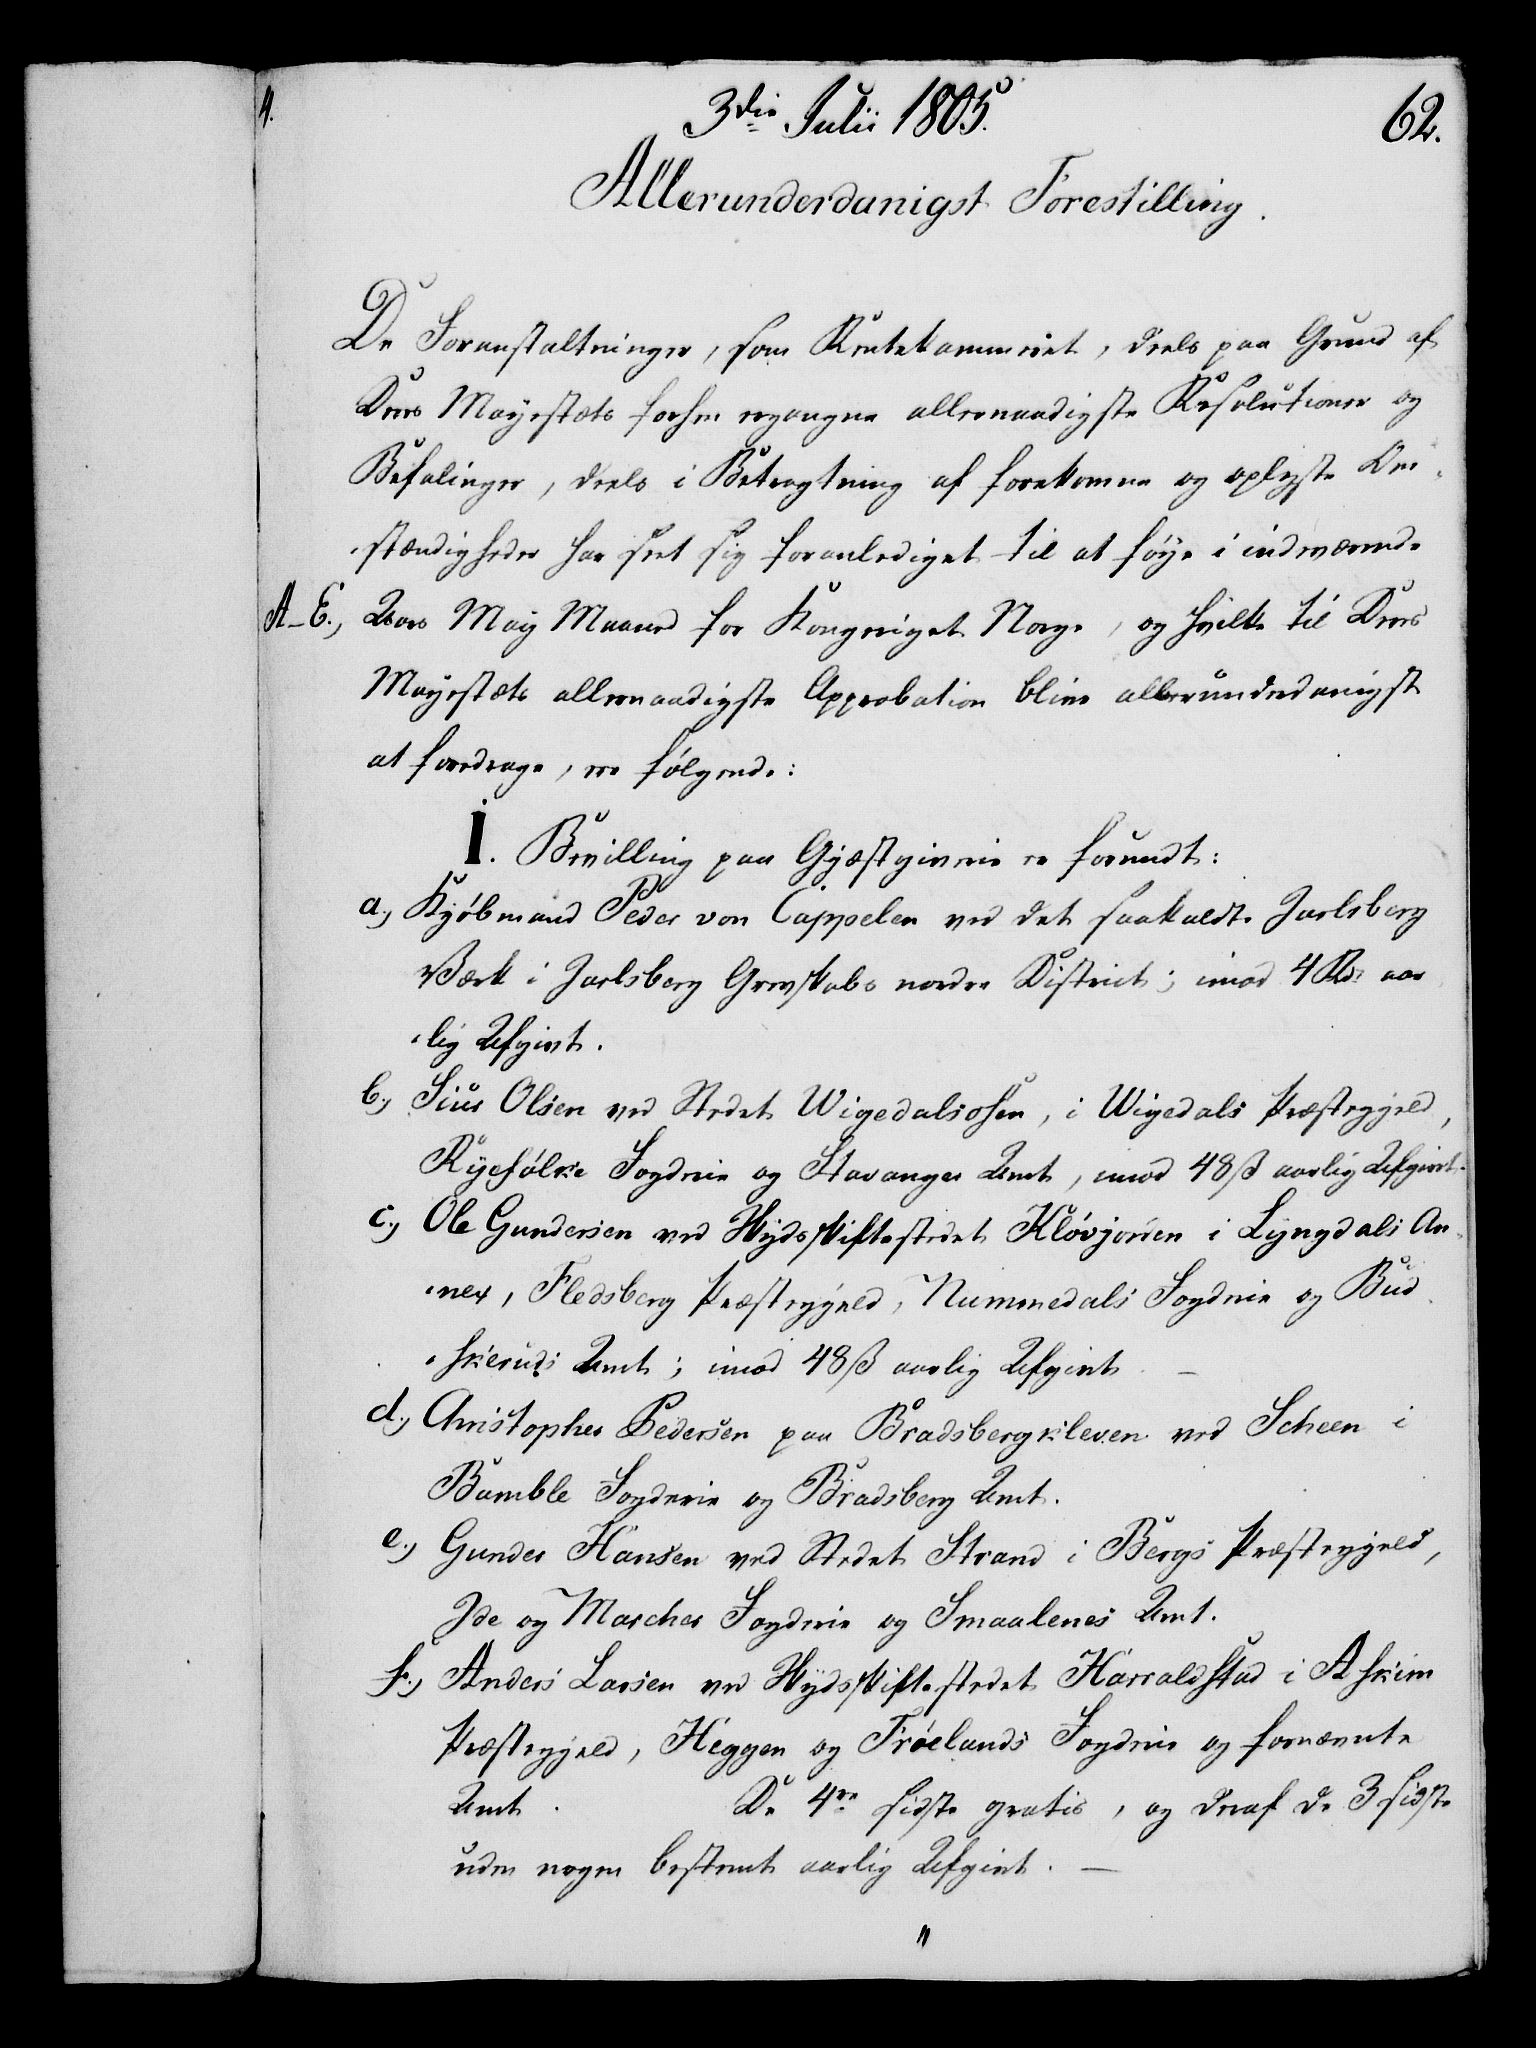 4.
3die Julii 1805.
62.
Allerunderdanigst Forestilling.
De Foranstaltninger, som Rentekammeret, deels paa Grund af
Deres Mayestæts forhen ergangne allernaadigste Resolutioner og
Befalinger, deels i Betragtning af forekomne og oplyste Om-
-stændigheder har seet sig foranlediget til at föye i indeværende
A-E., Aars May Maaned for Kongeriget Norge, og hvilke til Deres
Mayestæts allernaadigste Approbation blive allerunderdanigst
at foredrage, ere følgende:
I. Bevilling paa Gjæstgiverie er forundt:
a., Kjøbmand Peder von Cappelen ved det saakaldte Jarlsberg
Værk i Jarlsberg Grevskabs nordre District; imod 4 Rd. aar-
-lig Afgivt.
b., Siur Olsen ved Stedet Wigedalsosen, i Wigedals Præstegjeld,
Ryefølke Fogderie og Stavanger Amt, imod 48 ß aarlig Afgivt.
c., Ole Gundersen ved Skydsskiftestedet Kløvjorden i Lyngdals An-
-nex, Flesberg Præstegjeld, Nummedals Fogderie og Bud-
-skeruds Amt; imod 48 ß aarlig Afgivt. —
d., Christopher Pedersen paa Bradsbergkleven ved Scheen i
Bamble Fogderie og Bradsberg Amt.
e., Gunder Hansen ved Stedet Strand i Bergs Præstegjeld,
Ide og Marcher Fogderie og Smaalenes Amt.
f., Anders Larsen ved Skydsskiftestedet Harraldstad i Askim
Præstegjeld, Heggen og Frøelands Fogderie og fornævnte
Amt. De 4re sidste gratis, og deraf de 3 sidste
uden nogen bestemt aarlig Afgivt. —